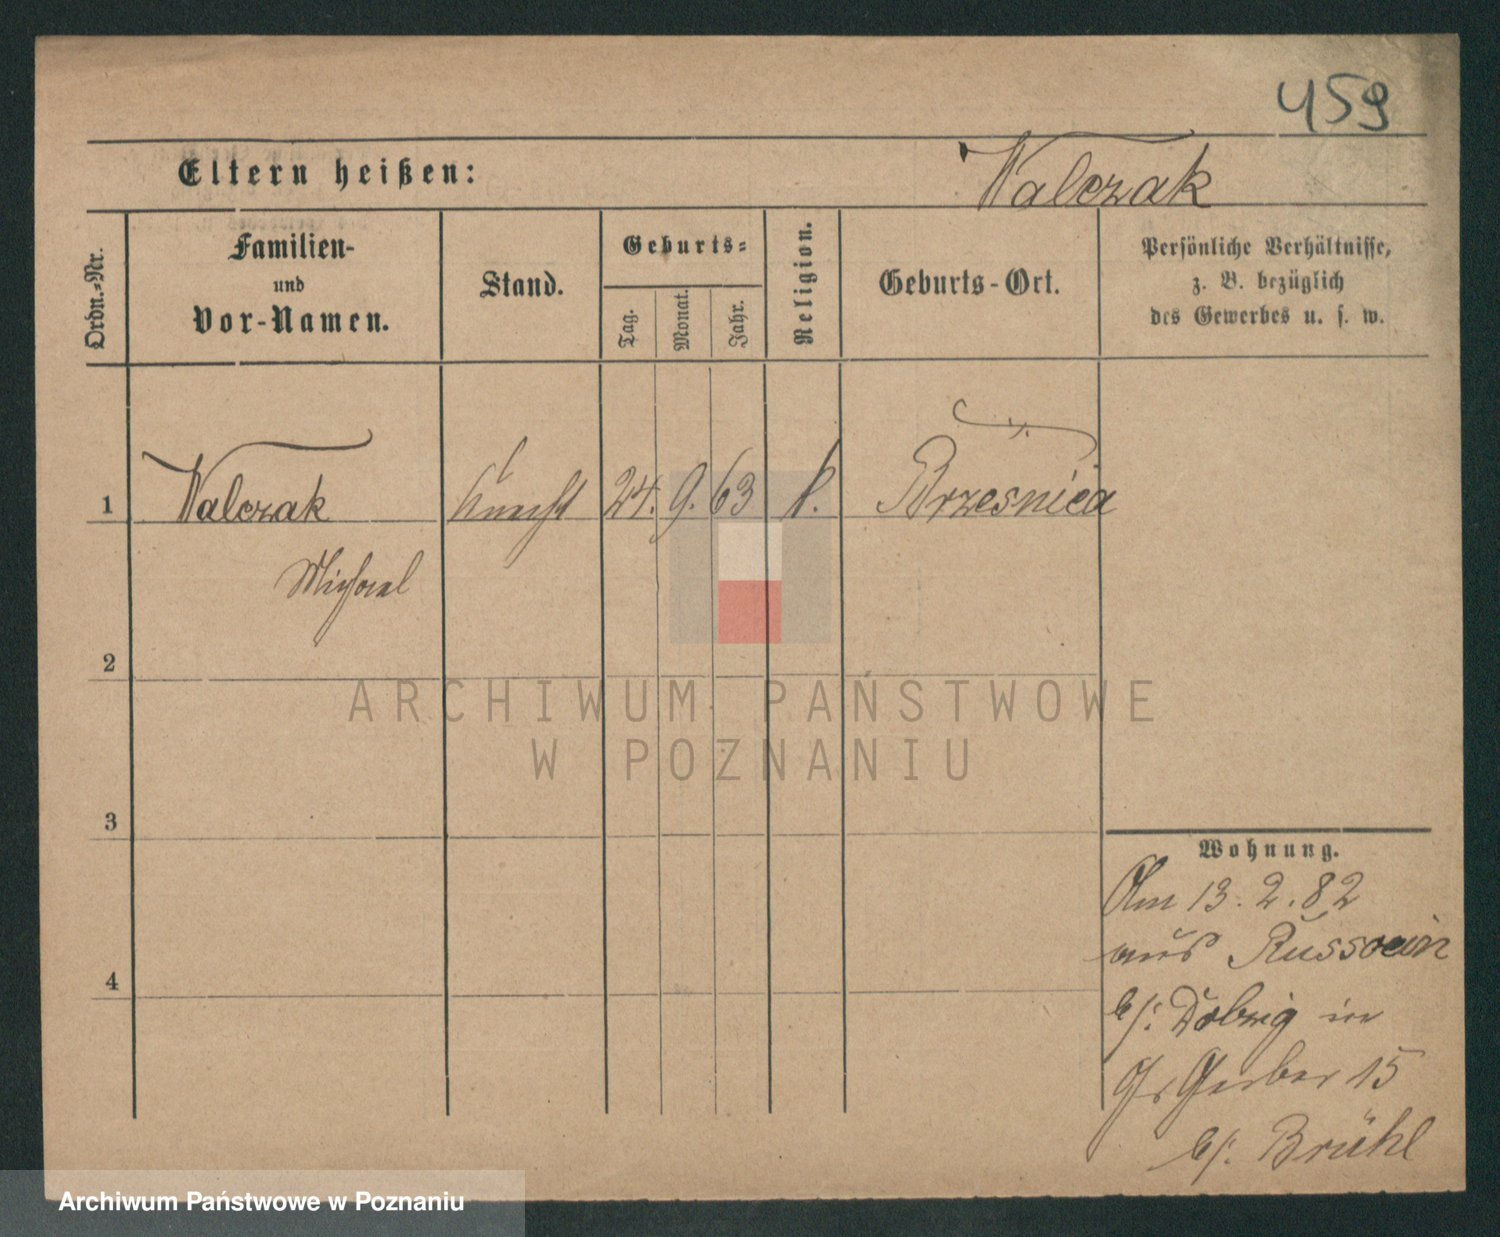 459
Eltern heißen: Walczak
Ordn.-Nr.
Familien-
und
Vor-Namen.
Stand.
Geburts-
Tag.
Monat.
Jahr.
Religion.
Geburts-Ort.
Persönliche Verhältnisse,
z. B. bezüglich
des Gewerbes u. s. w.
1 Walczak Knecht 24. 9. 63 k. Brzesnica
Michael
2
3
4
Wohnung.
Am 13. 2. 82
aus Russocin
b/: Dobrig in
Gr Gerber 15
b/: Brühl
ARCHIWUM PAŃSTWOWE
W POZNANIU
Archiwum Państwowe w Poznaniu